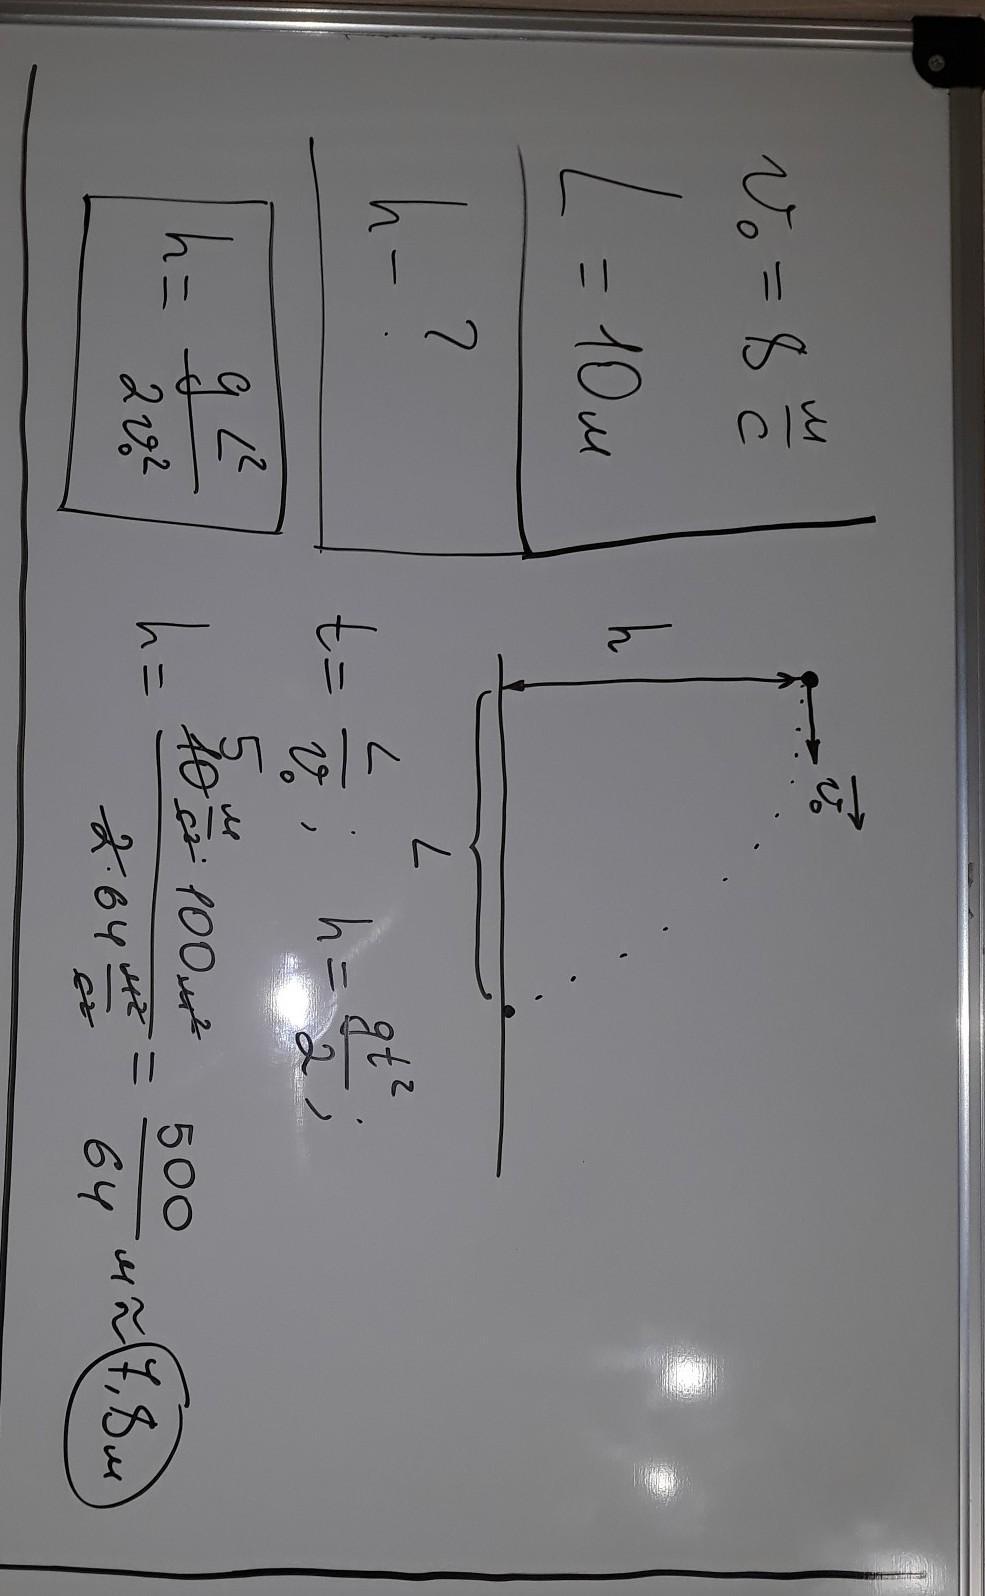 v₀ = 8 м/с
L = 10 м
h – ?
h = gL²/2v₀²
v₀
h
L
t = L/v₀; h = gt²/2;
5
h = 10 м/с² · 100 м² / 2 · 64 м²/с² = 500/64 м ≈ 7,8 м